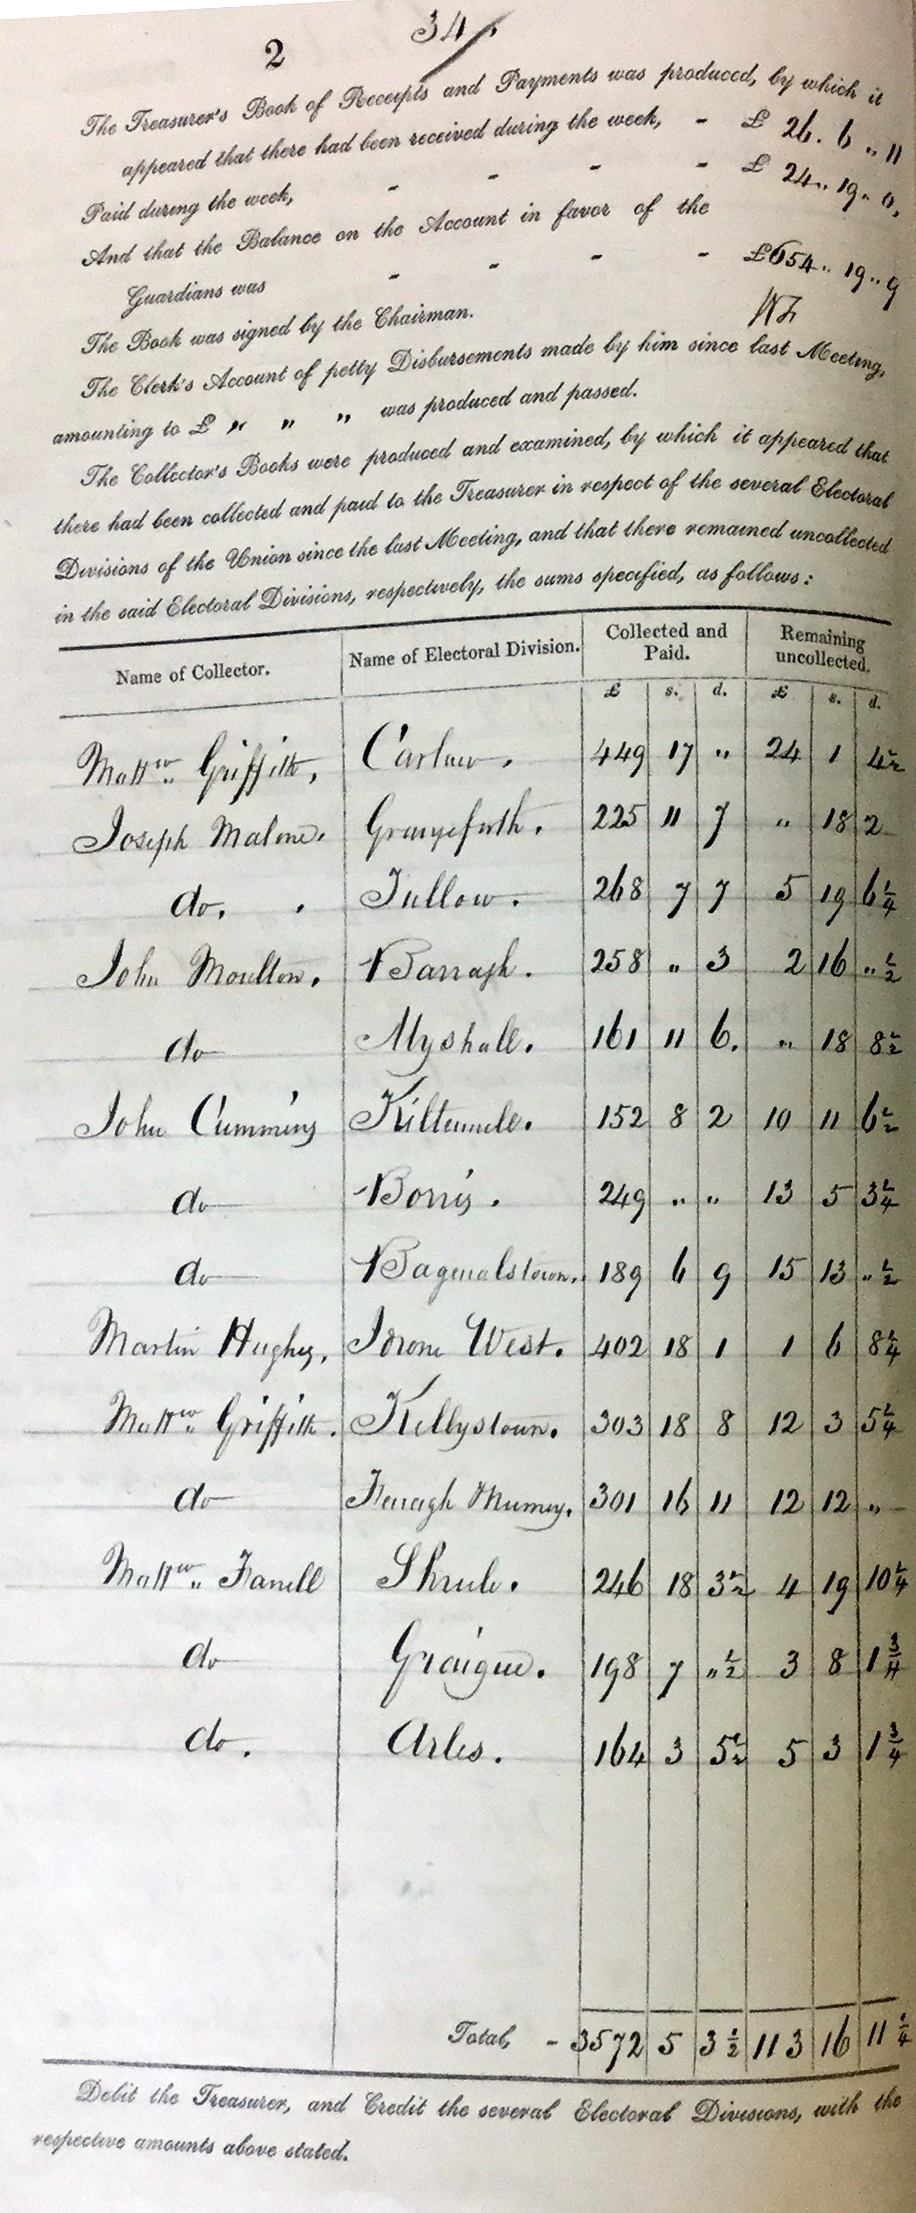 2 34/.
The Treasurer's Book of Receipts and Payments was produced, by which it
appeared that there had been received during the week, - £ 26. 6 „ 11
Paid during the week, - - - - £ 24 „ 19 „ 0,
And that the Balance on the Account in favor of the
Guardians was - - - - £654 „ 19 „ 9
The Book was signed by the Chairman.
The Clerk's Account of petty Disbursements made by him since last Meeting,
amounting to £ „ „ „ was produced and passed.
The Collector's Books were produced and examined, by which it appeared that
there had been collected and paid to the Treasurer in respect of the several Electoral
Divisions of the Union since the last Meeting, and that there remained uncollected
in the said Electoral Divisions, respectively, the sums specified, as follows:
Name of Collector. Name of Electoral Division. Collected and Paid. Remaining uncollected.
£ s. d. £ s. d.
Mattw. Griffith, Carlow. 449 17 „ 24 1 4½
Joseph Malone. Grangeforth. 225 11 7 „ 18 2
do. . Tullow. 268 7 7 5 19 6¼
John Moulton. Barragh. 258 „ 3 2 16 „ ½
do Myshall. 161 11 6. „ 18 8½
John Cummins Kiltennele. 152 8 2 10 11 6½
do Borris. 249 „ „ 13 5 3¼
do Bagenalstown. 189 6 9 15 13 „ ½
Martin Hughes, Idrone West. 402 18 1 1 6 8¼
Mattw. Griffith. Kellystown. 303 18 8 12 3 5¼
do Fenagh Nurney. 301 16 11 12 12 „
Mattw. Farrell Shrule. 246 18 3½ 4 19 10¼
do Graigue. 198 7 „ ½ 3 8 1¾
do. Arles. 164 3 5½ 5 3 1¾
Total, - 3572 5 3½ 113 16 11¼
Debit the Treasurer, and Credit the several Electoral Divisions, with the
respective amounts above stated.